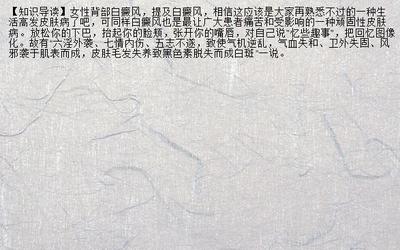 【知识导读】女性背部白癜风，提及白癜风，相信这应该是大家再熟悉不过的一种生
活高发皮肤病了吧，可同样白癜风也是最让广大患者痛苦和受影响的一种顽固性皮肤
病。放松你的下巴，抬起你的脸颊，张开你的嘴唇，对自己说"忆些趣事"，把回忆图像
化。故有"六淫外袭、七情内伤、五志不遂，致使气机逆乱，气血失和、卫外失固、风
邪袭于肌表而成，皮肤毛发失养致黑色素脱失而成白斑"一说。